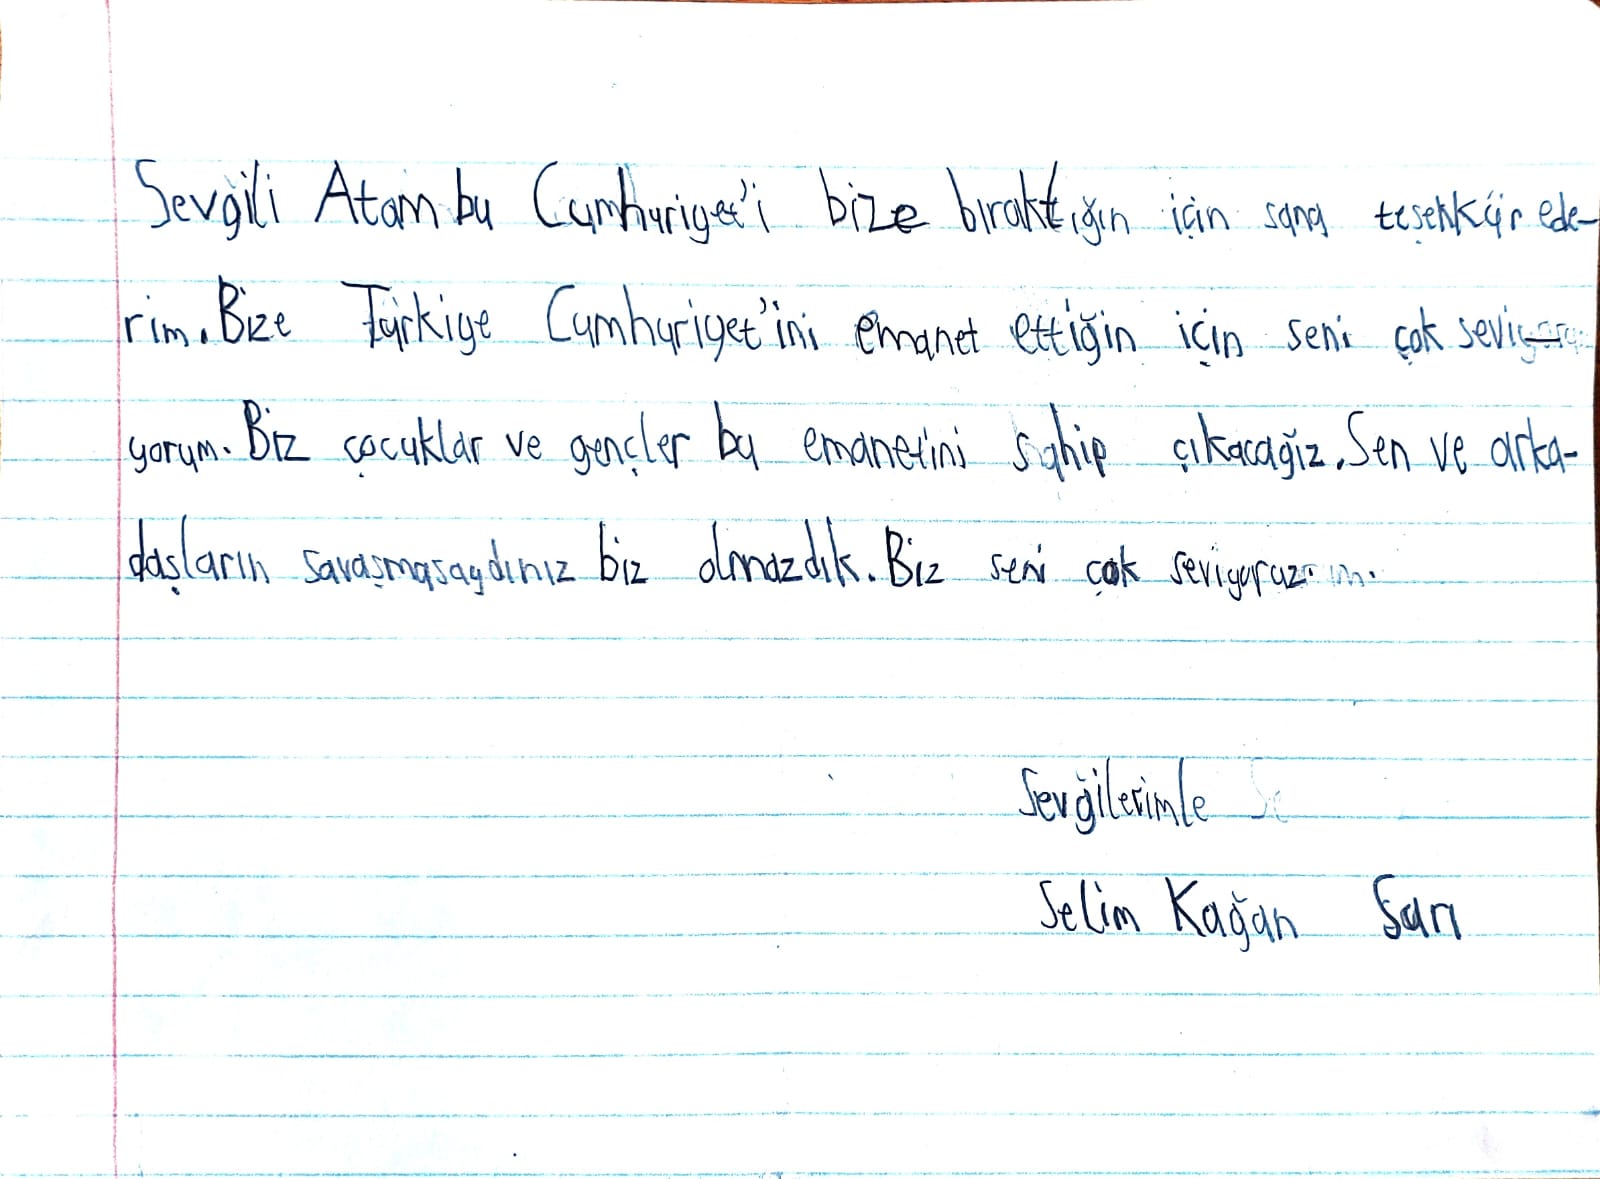 Sevğili Atam bu Cumhuriyet'i bize bıraktığın için sana teşekkür ede-
rim. Bize Türkiye Cumhuriyet'ini emanet ettiğin için seni çok sevi-
yorum. Biz çocuklar ve gençler bu emanetini sahip çıkacağız. Sen ve arka-
daşların savaşmasaydınız biz olmazdık. Biz seni çok seviyoruz.
Sevğilerimle
Selim Kağan Sarı